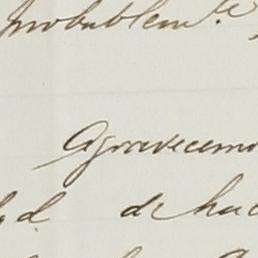 probablem.te
Agradecemo
ad de hac